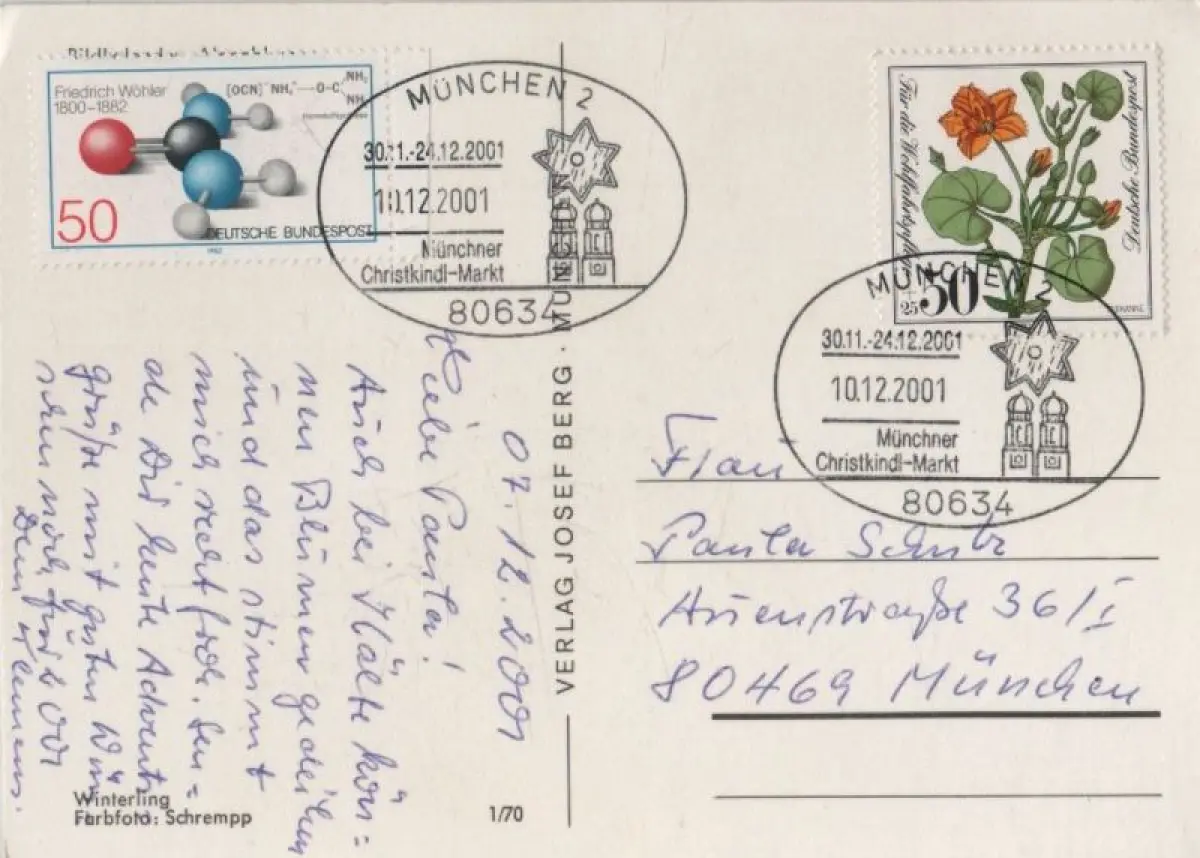 Friedrich Wöhler
1800–1882
[OCN]⁻NH₄⁺—O-C
NH₂
NH₂
50
DEUTSCHE BUNDESPOST
1982
MÜNCHEN 2
30.11.-24.12.2001
10.12.2001
Münchner
Christkindl-Markt
80634
Für die Wohlfahrtspflege
Deutsche Bundespost
50
25
MÜNCHEN 2
30.11.-24.12.2001
10.12.2001
Münchner
Christkindl-Markt
80634
07.12.2001
Liebe Paula!
Auch bei Kälte kön=
nen Blumen gedeihen
und das stimmt
mich recht froh. Sen=
de Dir heute Advents
grüße mit guten Wün
schen noch für 2001
Dein Klemens.
VERLAG JOSEF BERG · MÜNCHEN
Frau
Paula
Auenstraße 36/I
80469 München
Winterling
Farbfoto: Schrempp
1/70